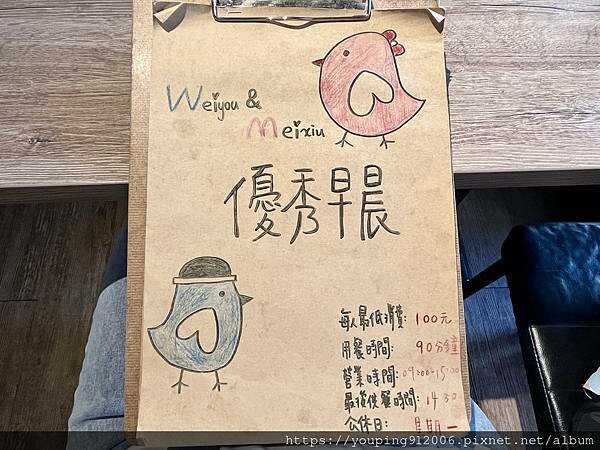 Weiyou &
Meixiu
優秀早晨
每人最低消費: 100元
用餐時間: 90分鐘
營業時間: 09:00-15:00
最後供餐時間: 14:30
公休日: 星期一
https://youping912006.pixnet.net/album